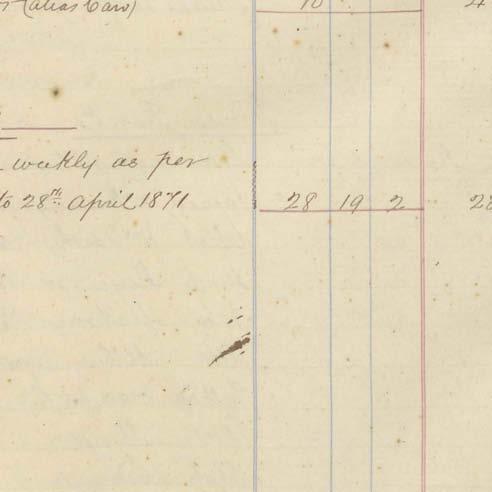 (alias Caro) 10 4
weekly as per
to 28th April 1871 28 19 2 28